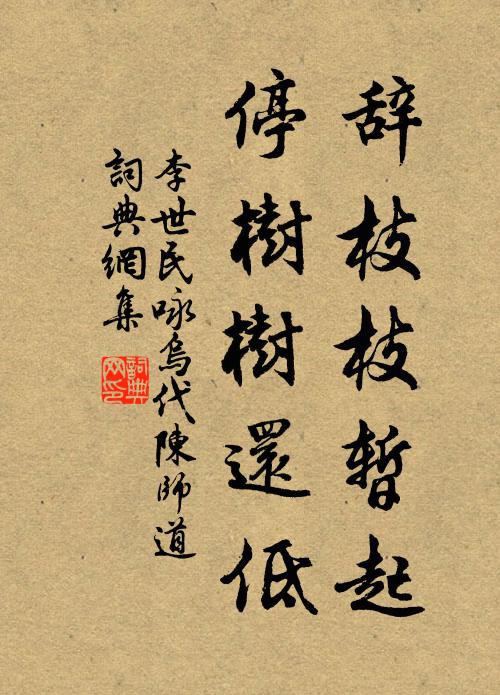 辞枝枝暫起
停樹樹還低
李世民咏烏代陳師道
詞典網集
詞典網印